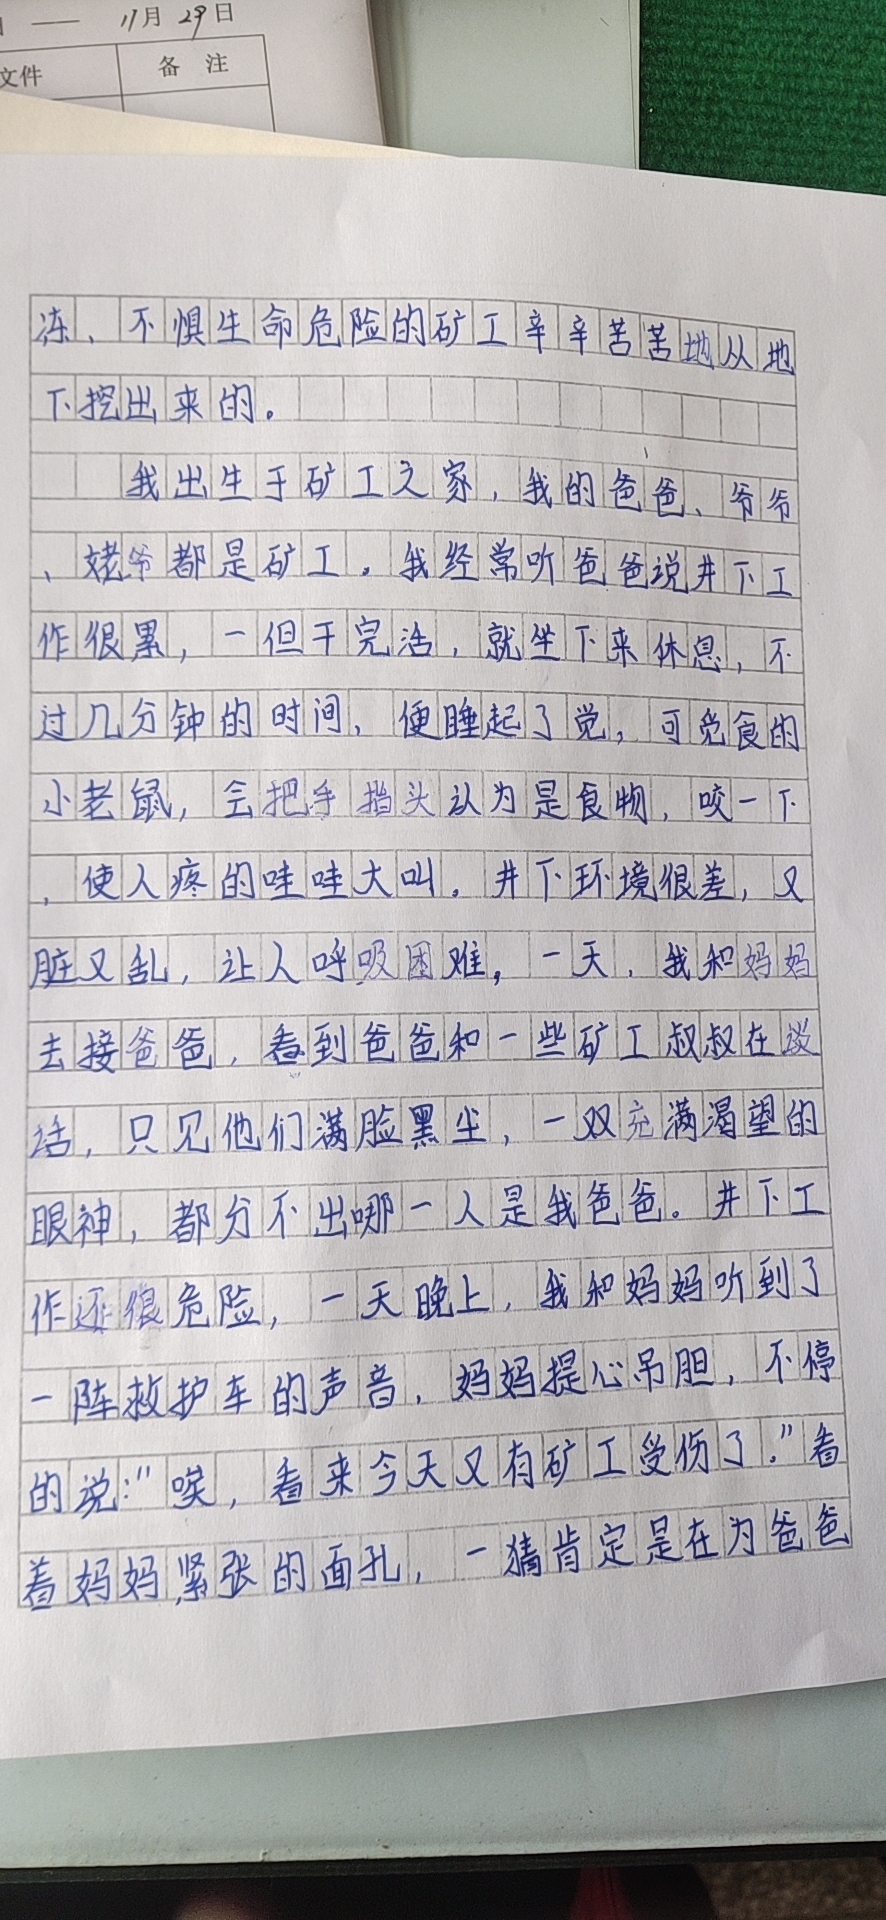 11月29日
文件 备注
冻、不惧生命危险的矿工辛辛苦苦地从地
下挖出来的。
我出生于矿工之家，我的爸爸、爷爷
、姥爷都是矿工。我经常听爸爸说井下工
作很累，一但干完活，就坐下来休息，不
过几分钟的时间，便睡起了觉，可觅食的
小老鼠，会把手指头认为是食物，咬一下
，使人疼的哇哇大叫。井下环境很差，又
脏又乱，让人呼吸困难，一天，我和妈妈
去接爸爸，看到爸爸和一些矿工叔叔在谈
话，只见他们满脸黑尘，一双充满渴望的
眼神，都分不出哪一人是我爸爸。井下工
作还很危险，一天晚上，我和妈妈听到了
一阵救护车的声音，妈妈提心吊胆，不停
的说："唉，看来今天又有矿工受伤了。"看
着妈妈紧张的面孔，一猜肯定是在为爸爸